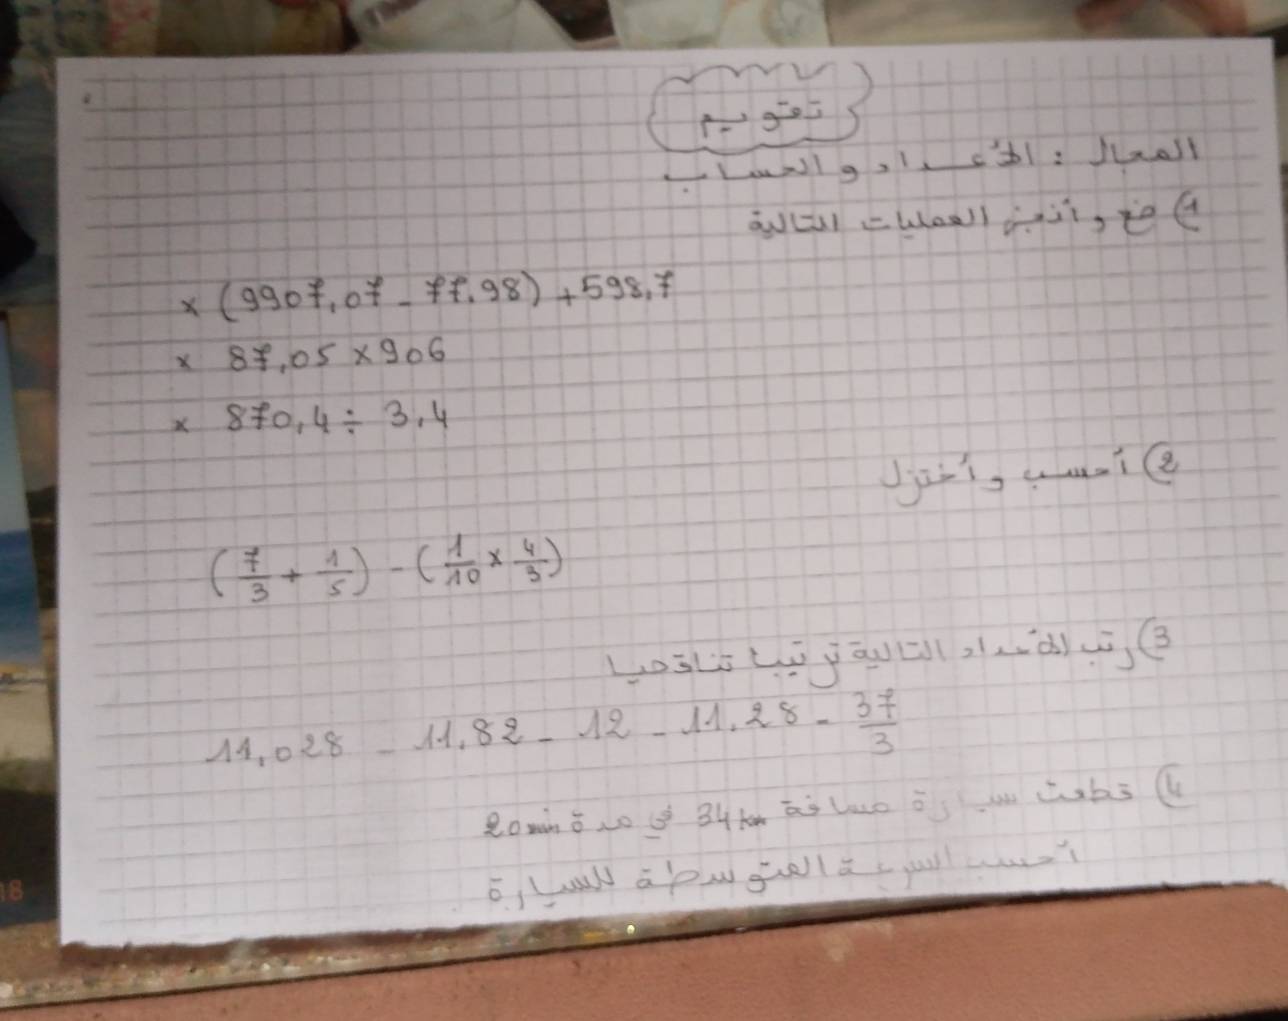 تقويم
المجال : الأعداد و الحساب
1) ضع و أنجز العمليات التالية
× (9907,07 - 77,98) + 598,7
× 87,05 × 906
× 870,4 ÷ 3,4
2) أحسب و أختزل
(7/3 + 1/5) - (1/10 × 4/3)
3) رتب الأعداد التالية ترتيبا تناقصيا
11,028 - 11,82 - 12 - 11,28 - 37/3
4) قطعت سيارة مسافة 34 km في مدة 20 min
أحسب السرعة المتوسطة للسيارة
18